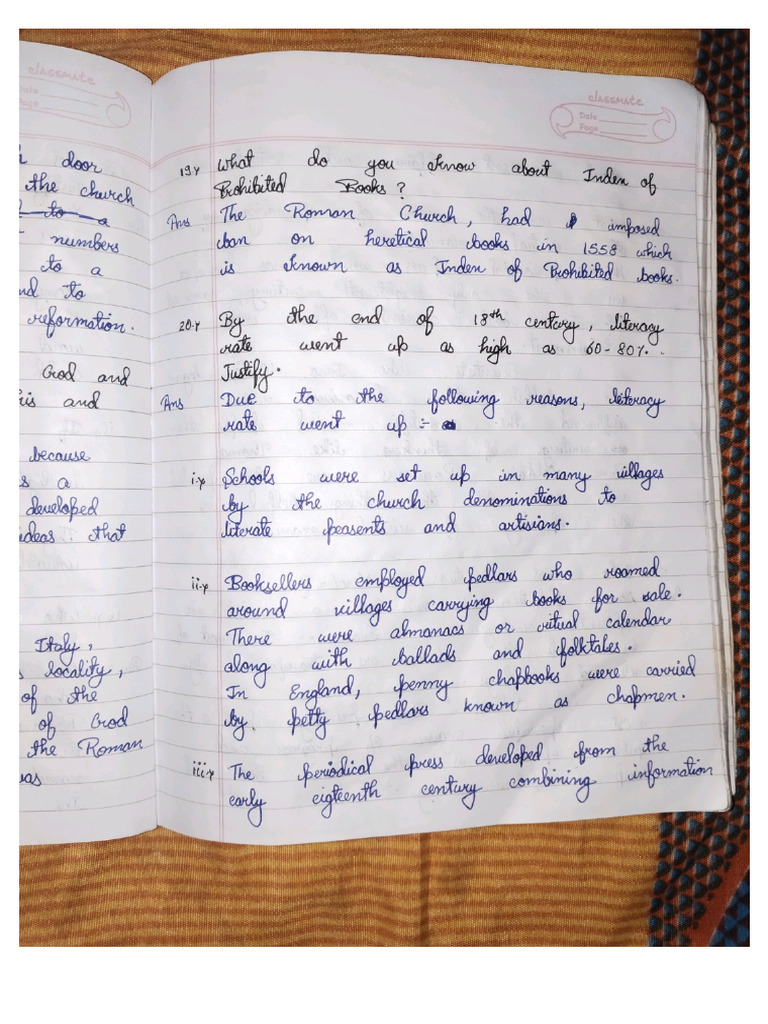 classmate
door
the church
to a
numbers
to a
nd to
reformation.
God and
is and
because
s a
developed
ideas that
Italy,
locality,
of the
of God
the Roman
was
classmate
Date
Page
19. What do you know about Inden of
Prohibited Books?
Ans The Roman Church, had imposed
ban on heretical books in 1558 which
is known as Inden of Prohibited books.
20. By the end of 18th century, literacy
rate went up as high as 60-80%.
Justify.
Ans Due to the following reasons, literacy
rate went up :-
i. Schools were set up in many villages
by the church denominations to
literate peasents and artisians.
ii. Booksellers employed pedlars who roamed
around villages carrying books for sale.
There were almanacs or ritual calendar
along with ballads and folktales.
In England, penny chapbooks were carried
by petty pedlars known as chapmen.
iii. The periodical press developed from the
early eigteenth century combining information